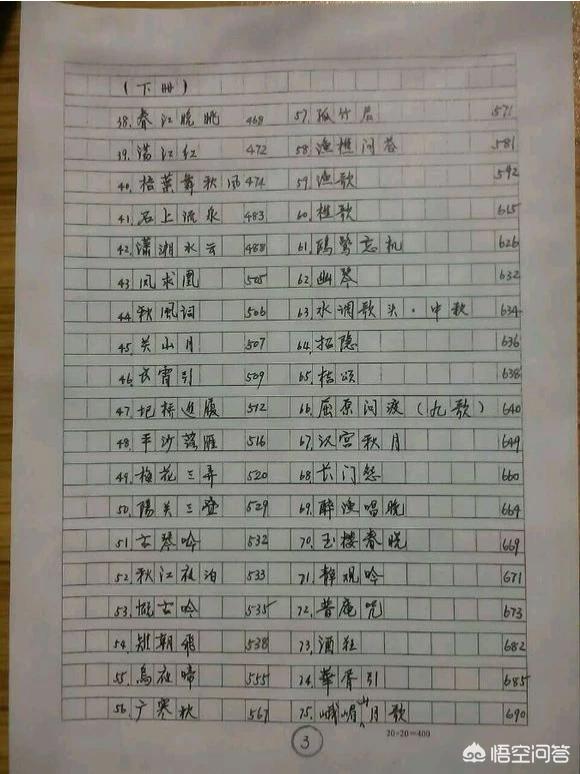 (下册)
38. 春江晚眺 468
39. 满江红 472
40. 梧葉舞秋风 474
41. 石上流泉 483
42. 瀟湘水云 488
43. 凤求凰 505
44. 秋風词 506
45. 关山月 507
46. 良宵引 509
47. 圯桥進履 512
48. 平沙落雁 516
49. 梅花三弄 520
50. 陽关三叠 529
51. 古琴吟 532
52. 秋江夜泊 533
53. 慨古吟 535
54. 雉朝飛 538
55. 烏夜啼 555
56. 广寒秋 567
57. 孤竹君 571
58. 渔樵问答 581
59. 渔歌 592
60. 樵歌 615
61. 鸥鹭忘机 626
62. 幽琴 632
63. 水调歌头·中秋 634
64. 招隐 636
65. 桔颂 638
66. 屈原问渡(九歌) 640
67. 汉宫秋月 649
68. 长门怨 660
69. 醉渔唱晚 664
70. 玉楼春晓 669
71. 静观吟 671
72. 普庵咒 673
73. 酒狂 682
74. 華胥引 685
75. 峨嵋山月歌 690
3
20×20=400
悟空问答